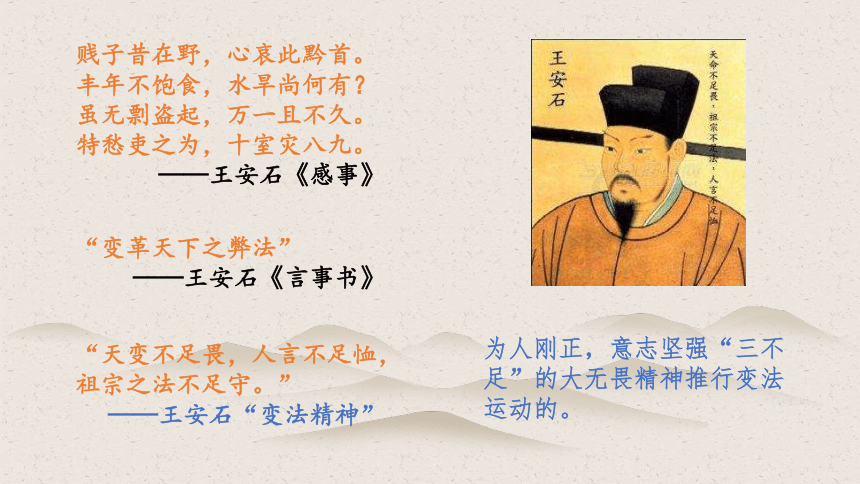 贱子昔在野，心哀此黔首。
丰年不饱食，水旱尚何有？
虽无剽盗起，万一且不久。
特愁吏之为，十室灾八九。
——王安石《感事》
“变革天下之弊法”
——王安石《言事书》
“天变不足畏，人言不足恤，
祖宗之法不足守。”
——王安石“变法精神”
王安石
天命不足畏，祖宗不足法，人言不足恤
为人刚正，意志坚强“三不
足”的大无畏精神推行变法
运动的。